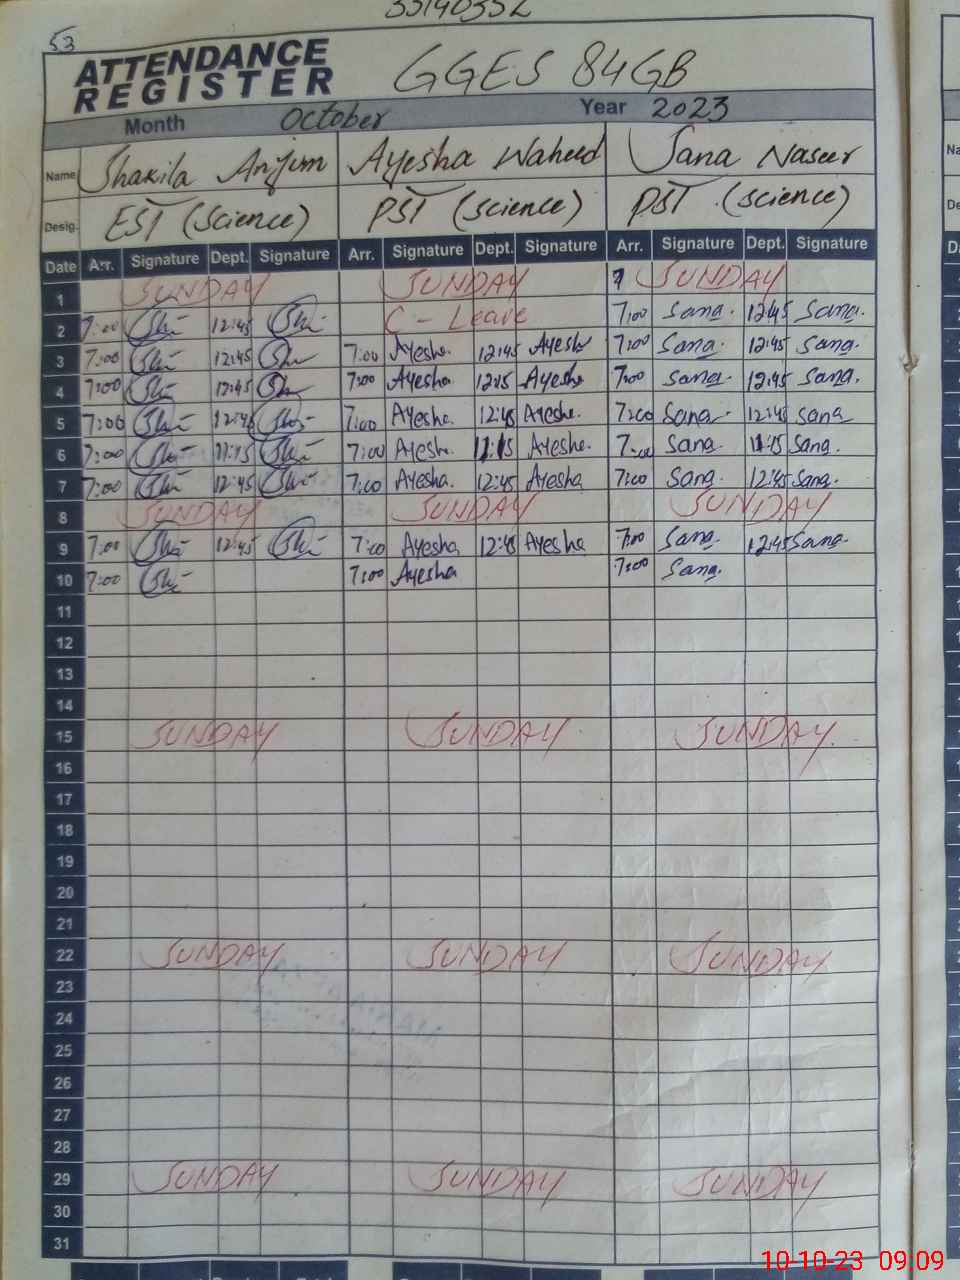 53
ATTENDANCE
REGISTER GGES 84GB
Month October Year 2023
Name Shakila Anjum Ayesha Waheed Sana Naseer
Desig. EST (Science) PST (Science) PST (Science)
Date Arr. Signature Dept. Signature Arr. Signature Dept. Signature Arr. Signature Dept. Signature
1 SUNDAY SUNDAY SUNDAY
2 7:00 12:45 C - Leave 7:00 Sana. 12:45 Sana.
3 7:00 12:45 7:00 Ayesha. 12:45 Ayesha 7:00 Sana. 12:45 Sana.
4 7:00 12:45 7:00 Ayesha 12:45 Ayesha 7:00 Sana. 12:45 Sana.
5 7:00 12:45 7:00 Ayesha. 12:45 Ayesha. 7:00 Sana. 12:45 Sana
6 7:00 11:15 7:00 Ayesha. 11:15 Ayesha. 7:00 Sana. 11:15 Sana.
7 7:00 12:45 7:00 Ayesha. 12:45 Ayesha 7:00 Sana. 12:45 Sana.
8 SUNDAY SUNDAY SUNDAY
9 7:00 12:45 7:00 Ayesha 12:45 Ayesha 7:00 Sana. 12:45 Sana.
10 7:00 7:00 Ayesha 7:00 Sana.
11
12
13
14
15 SUNDAY SUNDAY SUNDAY.
16
17
18
19
20
21
22 SUNDAY SUNDAY SUNDAY
23
24
25
26
27
28
29 SUNDAY SUNDAY SUNDAY
30
31
10-10-23 09:09